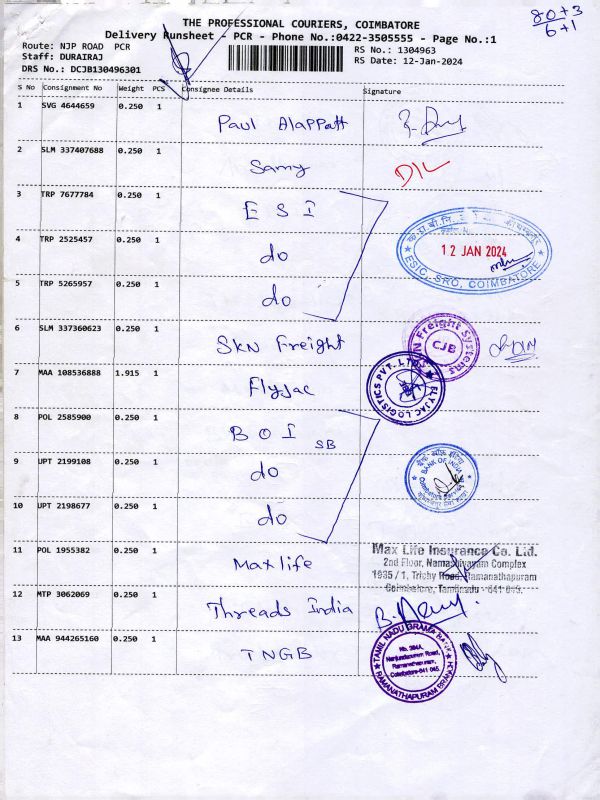 THE PROFESSIONAL COURIERS, COIMBATORE
80+3
6+1
Delivery Runsheet - PCR - Phone No.:0422-3505555 - Page No.:1
Route: NJP ROAD PCR
RS No.: 1304963
Staff: DURAIRAJ
RS Date: 12-Jan-2024
DRS No.: DCJB130496301
S No Consignment No Weight PCS Consignee Details Signature
1 SVG 4644659 0.250 1 Paul Alappatt
2 SLM 337407688 0.250 1 Samy
3 TRP 7677784 0.250 1 ESI
4 TRP 2525457 0.250 1 do
12 JAN 2024
ESIC, SRO, COIMBATORE
5 TRP 5265957 0.250 1 do
6 SLM 337360623 0.250 1 SKN Freight
SKN Freight Systems
CJB
7 MAA 108536888 1.915 1 Flyjac
FLYJAC LOGISTICS PVT. LTD.
8 POL 2585900 0.250 1 BOI SB
9 UPT 2199108 0.250 1 do
बैंक ऑफ इंडिया
BANK OF INDIA
10 UPT 2198677 0.250 1 do
11 POL 1955382 0.250 1 Maxlife
Max Life Insurance Co. Ltd.
2nd Floor, Namashivayam Complex
1935 / 1, Trichy Road, Ramanathapuram
Coimbatore, Tamilnadu - 641 045.
12 MTP 3062069 0.250 1 Threads India
13 MAA 944265160 0.250 1 TNGB
TAMIL NADU GRAMA BANK
No. 384A,
Nanjundapuram Road,
Ramanathapuram,
Coimbatore-641 045
RAMANATHAPURAM BRANCH